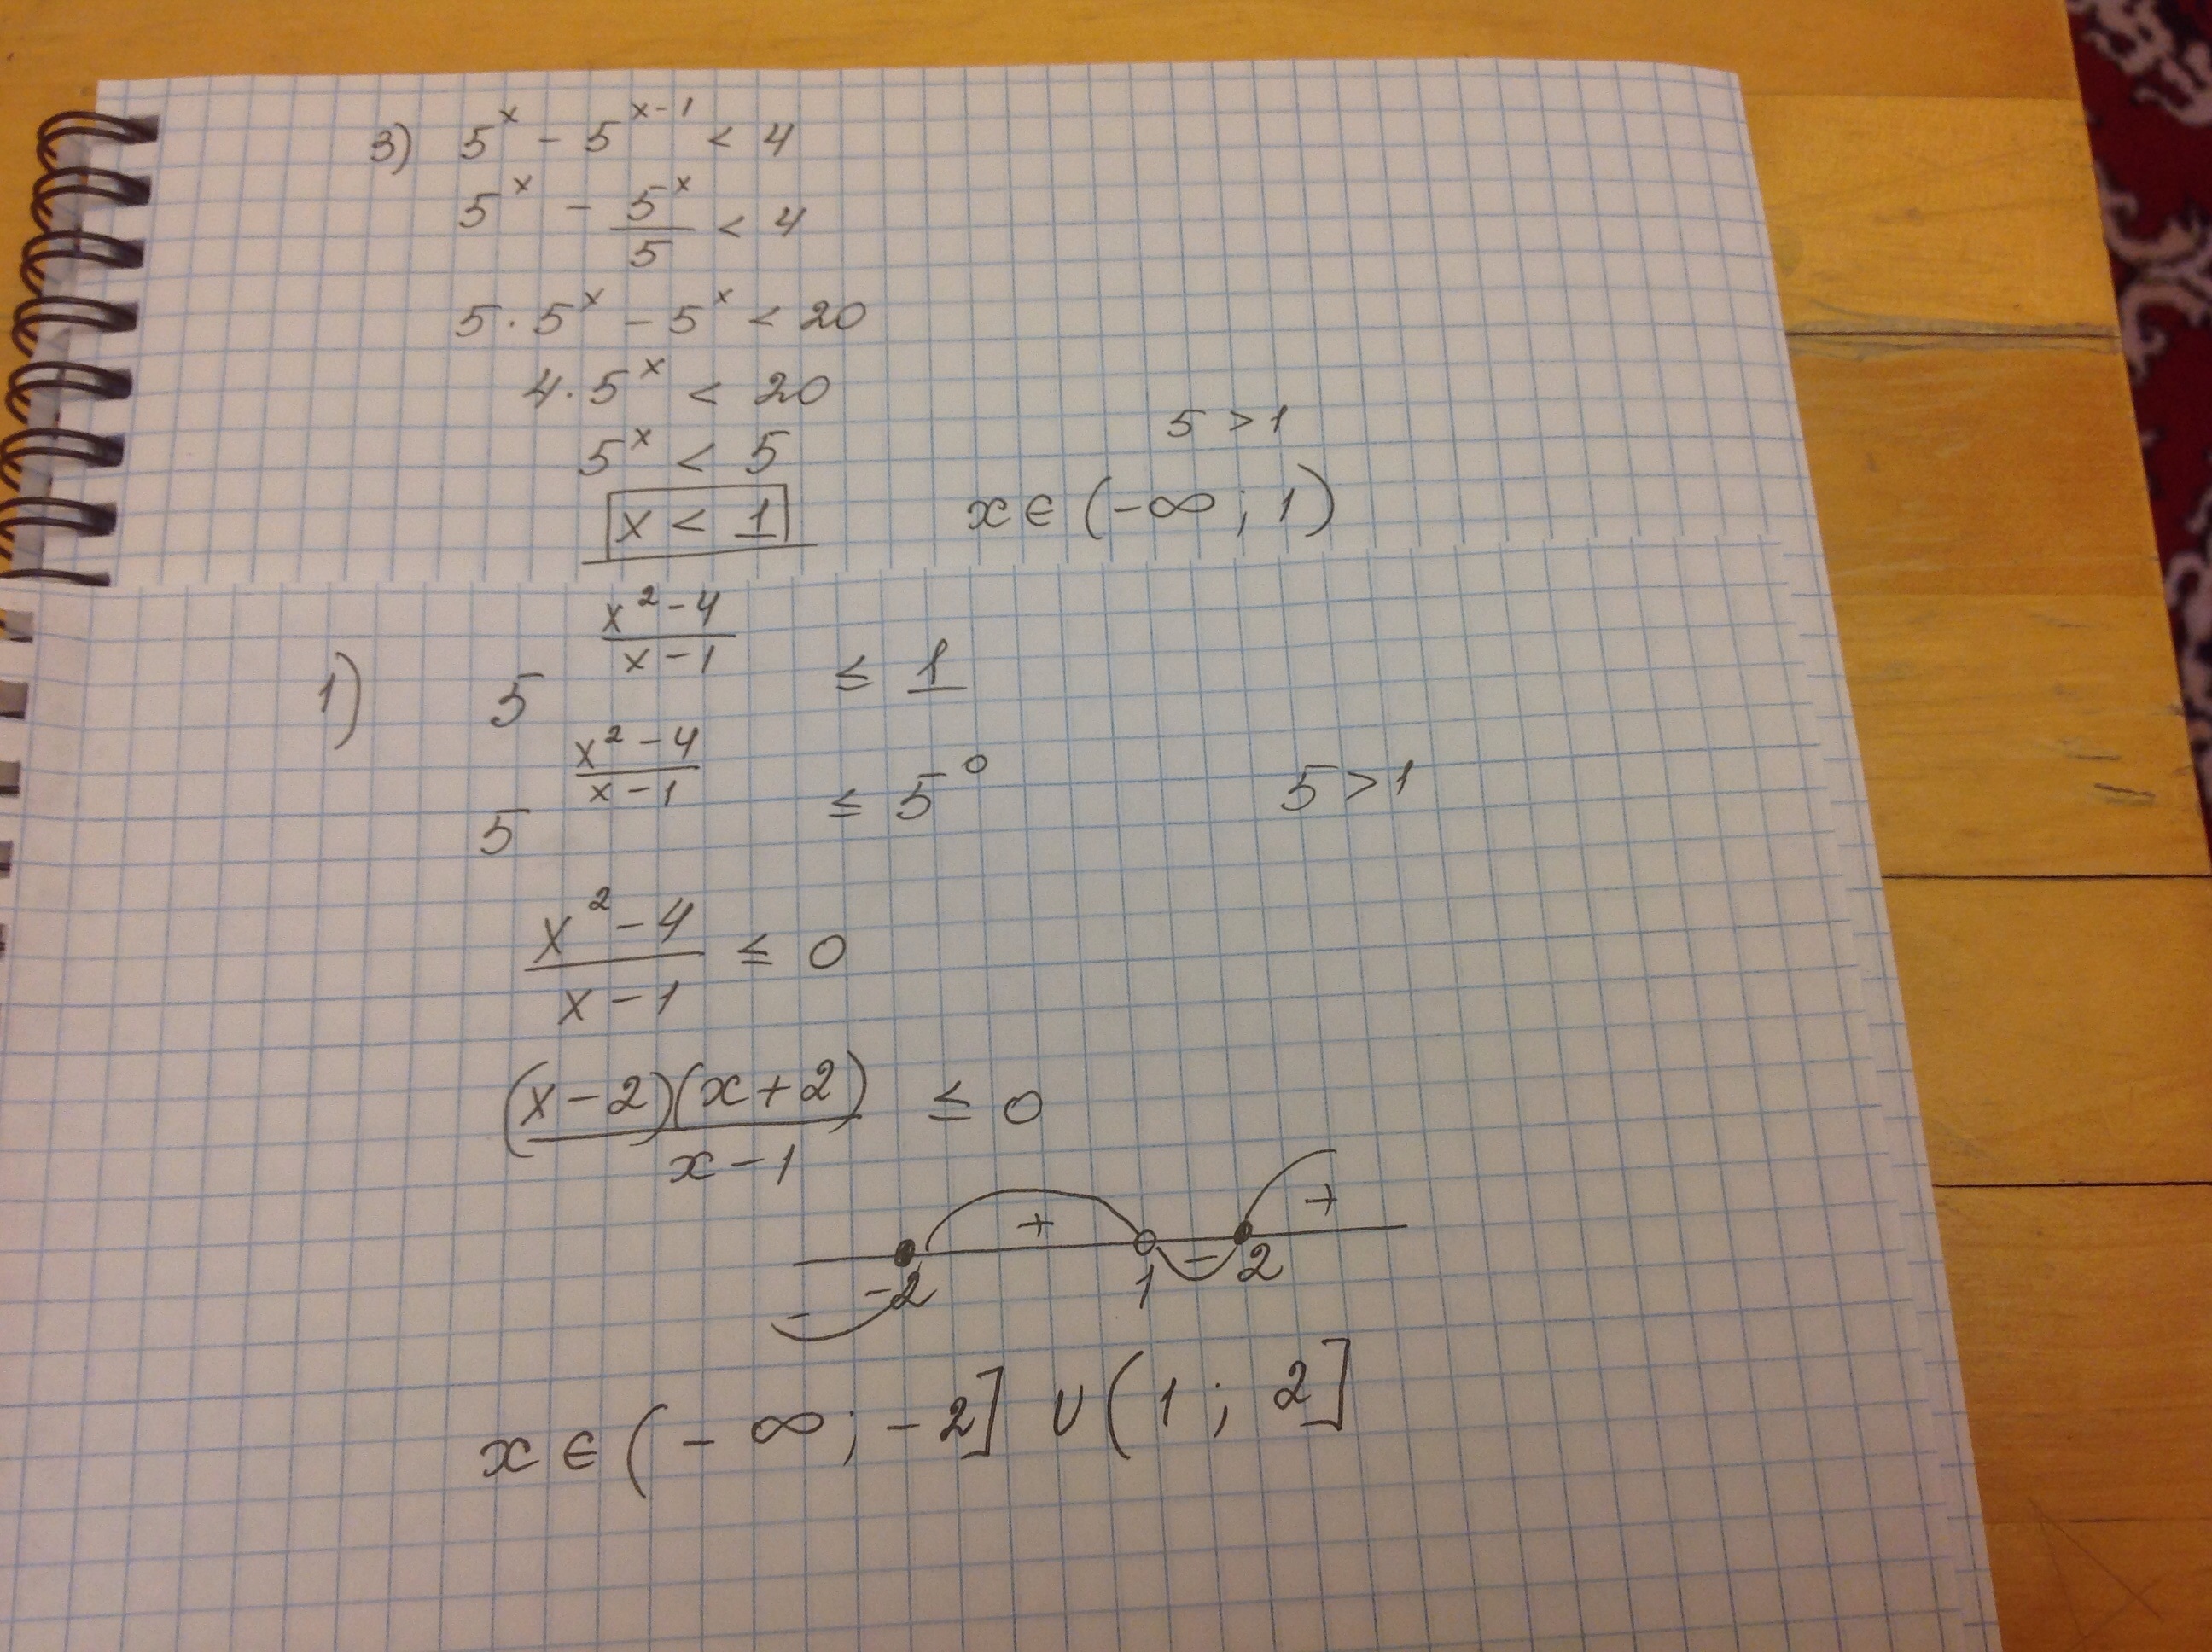 3) 5^x - 5^(x-1) < 4
5^x - 5^x/5 < 4
5 · 5^x - 5^x < 20
4 · 5^x < 20
5^x < 5 5 > 1
x < 1 x ∈ (-∞ ; 1)
1) 5^((x²-4)/(x-1)) ≤ 1
5^((x²-4)/(x-1)) ≤ 5^0 5 > 1
(x²-4)/(x-1) ≤ 0
(x-2)(x+2)/(x-1) ≤ 0
- + - +
-2 1 2
x ∈ (-∞ ; -2] ∪ (1 ; 2]